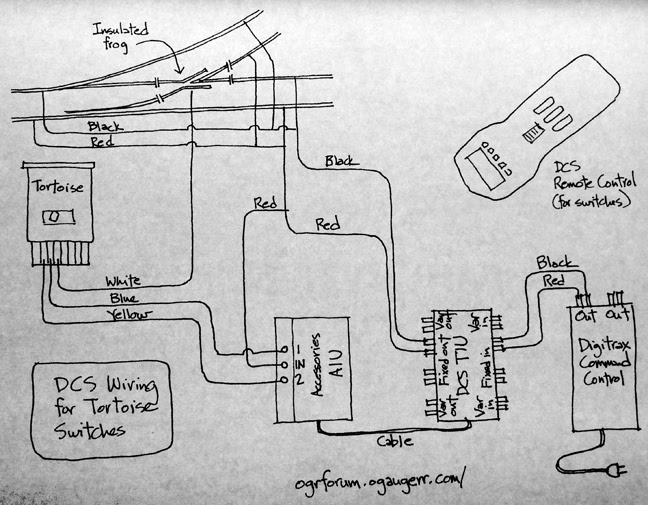 Insulated
frog
Black
Red
Tortoise
White
Blue
Yellow
Red
Black
Red
DCS
Remote Control
(for switches)
Black
Red
1
IN
2
Accessories
AIU
Var
out
Var
in
Fixed out
DCS TIU
Fixed in
Var
out
Var
in
Out
Out
Digitrax
Command
Control
Cable
DCS Wiring
for Tortoise
Switches
ogrforum.ogaugerr.com/